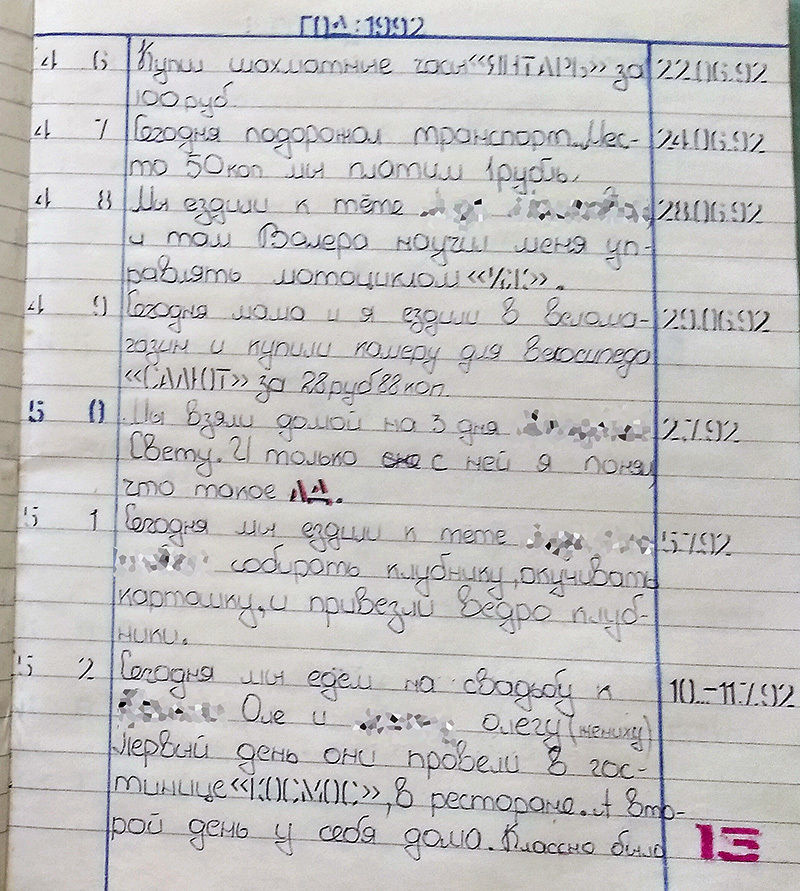 ГОД: 1992
46 Купил шахматные часы «ЯНТАРЬ» за 22.06.92
100 руб
47 Сегодня подорожал транспорт. Вмес- 24.06.92
то 50 коп мы платим 1 рубль.
48 Мы ездили к тёте 28.06.92
и там Валера научил меня уп-
равлять мотоциклом «ИЖ».
49 Сегодня мама и я ездили в велома- 29.06.92
газин и купили камеру для велосипеда
«САЛЮТ» за 28 руб 88 коп
50 Мы взяли домой на 3 дня 2.7.92
Свету. И только с ней я понял,
что такое АД.
51 Сегодня мы ездили к тете 5.7.92
собирать клубнику, окучивать
картошку, и привезли ведро клуб-
ники.
52 Сегодня мы едем на свадьбу к 10.-11.7.92
Оле и олегу (жениху)
Первый день они провели в гос-
тинице «КОСМОС», в ресторане. А вто-
рой день у себя дома. Классно было
13